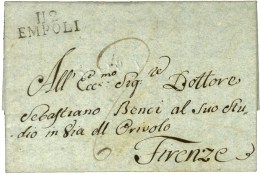 112
EMPOLI
All' Ecc.mo Sig.re Dottore
Sebastiano Benci al Suo Stu-
dio in Via dll Orivolo
Firenze